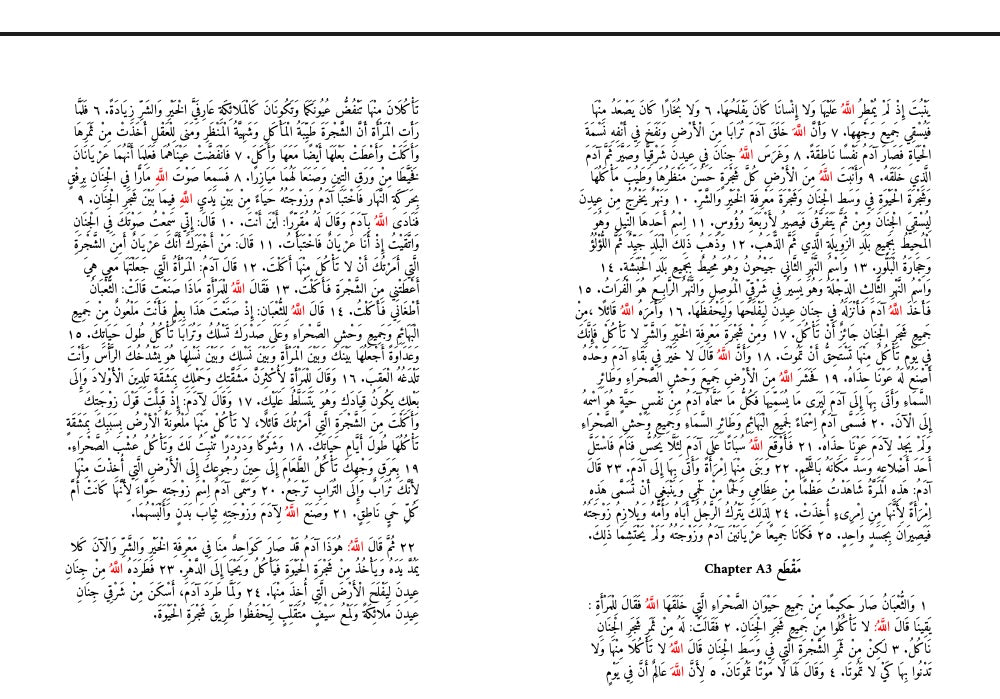 يَنْبُتَ إِذْ لَمْ يُمْطِرُ اللّٰهُ عَلَيْهَا وَلا إِنْسَانًا كَانَ يَفْلَحُهَا. ٦ وَلا بُخَارًا كَانَ يَصْعَدُ مِنْهَا
فَيُسْقِي جَمِيعَ وَجْهِهَا. ٧ وَأَنَّ اللّٰهَ خَلَقَ آدَمَ تُرَابًا مِنَ الْأَرْضِ وَنَفَخَ فِي أَنْفِهِ نَسَمَةَ
الْحَيَاةِ فَصَارَ آدَمُ نَفْسًا نَاطِقَةً. ٨ وَغَرَسَ اللّٰهُ جِنَانَ فِي عِيدِنَ شَرْقِيًّا وَصَيَّرَ ثَمَّ آدَمَ
الَّذِي خَلَقَهُ. ٩ وَأَنْبَتَ اللّٰهُ مِنَ الْأَرْضِ كُلَّ شَجَرَةٍ حَسُنَ مَنْظَرُهَا وَطَيِّبَ مَأْكَلُهَا
وَشَجَرَةَ الْحَيٰوةِ فِي وَسَطِ الْجِنَانِ وَشَجَرَةَ مَعْرِفَةِ الْخَيْرِ وَالشَّرِّ. ١٠ وَنَهْرٌ يَخْرُجُ مِنْ عِيدِنَ
لِيُسْقِيَ الْجِنَانَ وَمِنْ ثَمَّ يَتَفَرَّقُ فَيَصِيرُ لِأَرْبَعَةِ رُؤُوسٍ. ١١ اِسْمُ أَحَدِهَا النِّيلُ وَهُوَ
الْمُحِيطُ بِجَمِيعِ بَلَدِ الزَّوِيلَةِ الَّذِي ثَمَّ الذَّهَبُ. ١٢ وَذَهَبُ ذَلِكَ الْبَلَدِ جَيِّدٌ ثَمَّ اللُّؤْلُؤُ
وَحِجَارَةُ الْبَلُّورِ. ١٣ وَاسْمُ النَّهْرِ الثَّانِي جَيْحُونُ وَهُوَ مُحِيطٌ بِجَمِيعِ بَلَدِ الْحَبَشَةِ. ١٤
وَاسْمُ النَّهْرِ الثَّالِثِ الدِّجْلَةُ وَهُوَ يَسِيرُ فِي شَرْقِيِّ الْمَوْصِلِ وَالنَّهْرُ الرَّابِعُ هُوَ الْفُرَاتُ. ١٥
فَأَخَذَ اللّٰهُ آدَمَ فَأَنْزَلَهُ فِي جِنَانِ عِيدِنَ لِيَفْلَحَهَا وَلِيَحْفَظَهَا. ١٦ وَأَمَرَهُ اللّٰهُ قَائِلًا ،مِنْ
جَمِيعِ شَجَرِ الْجِنَانِ جَائِزٌ أَنْ تَأْكُلَ. ١٧ وَمِنْ شَجَرَةِ مَعْرِفَةِ الْخَيْرِ وَالشَّرِّ لا تَأْكُلْ فَإِنَّكَ
فِي يَوْمِ تَأْكُلُ مِنْهَا تَسْتَحِقُّ أَنْ تَمُوتَ. ١٨ وَأَنَّ اللّٰهَ قَالَ لا خَيْرَ فِي بَقَاءِ آدَمَ وَحْدَهُ
أَصْنَعُ لَهُ عَوْنًا حِذَاهُ. ١٩ فَحَشَرَ اللّٰهُ مِنَ الْأَرْضِ جَمِيعَ وَحْشِ الصَّحْرَاءِ وَطَائِرِ
السَّمَاءِ وَأَتَى بِهَا إِلَى آدَمَ لِيَرَى مَا يُسَمِّيهَا فَكُلُّ مَا سَمَّاهُ آدَمُ مِنْ نَفْسٍ حَيَّةٍ هُوَ اسْمُهُ
إِلَى الْآنَ. ٢٠ فَسَمَّى آدَمُ اِسْمَاءً لِجَمِيعِ الْبَهَائِمِ وَطَائِرِ السَّمَاءِ وَجَمِيعِ وَحْشِ الصَّحْرَاءِ
وَلَمْ يَجِدْ لِآدَمَ عَوْنًا حِذَاهُ. ٢١ فَأَوْقَعَ اللّٰهُ سُبَاتًا عَلَى آدَمَ لِئَلَّا يَحُسَّ فَنَامَ فَاسْتَلَّ
أَحَدَ أَضْلاعِهِ وَسَدَّ مَكَانَهُ بِاللَّحْمِ. ٢٢ وَبَنَى مِنْهَا اِمْرَأَةً وَأَتَى بِهَا إِلَى آدَمَ. ٢٣ قَالَ
آدَمُ: هَذِهِ الْمَرَّةَ شَاهَدْتُ عَظْمًا مِنْ عِظَامِي وَلَحْمًا مِنْ لَحْمِي وَيَنْبَغِي أَنْ تُسَمَّى هَذِهِ
اِمْرَأَةً لِأَنَّهَا مِنِ امْرِىءٍ أُخِذَتْ. ٢٤ لِذَلِكَ يَتْرُكُ الرَّجُلُ أَبَاهُ وَأُمَّهُ وَيُلازِمُ زَوْجَتَهُ
فَيَصِيرَانِ بِجَسَدٍ وَاحِدٍ. ٢٥ فَكَانَا جَمِيعًا عَرْيَانَيْنَ آدَمُ وَزَوْجَتُهُ وَلَمْ يَحْتَشِمَا ذَلِكَ.
مَقْطَع Chapter A3
١ وَالثُّعْبَانُ صَارَ حَكِيمًا مِنْ جَمِيعِ حَيَوَانِ الصَّحْرَاءِ الَّتِي خَلَقَهَا اللّٰهُ فَقَالَ لِلْمَرْأَةِ :
يَقِينًا قَالَ اللّٰهُ: لا تَأْكُلُوا مِنْ جَمِيعِ شَجَرِ الْجِنَانِ. ٢ فَقَالَتْ: لَهُ مِنْ ثَمَرِ شَجَرِ الْجِنَانِ
نَاكُلُ. ٣ لَكِنْ مِنْ ثَمَرِ الشَّجَرَةِ الَّتِي فِي وَسَطِ الْجِنَانِ قَالَ اللّٰهُ لا تَأْكُلا مِنْهَا وَلا
تَدْنُوا بِهَا كَيْ لا تَمُوتَا. ٤ وَقَالَ لَهَا لَا مَوْتًا تَمُوتَانَ. ٥ لِأَنَّ اللّٰهَ عَالِمٌ أَنَّ فِي يَوْمِ
تَأْكُلَانَ مِنْهَا تَنْفَضُّ عُيُونَكُمَا وَتَكُونَانَ كَالْمَلائِكَةِ عَارِفَيِّ الْخَيْرِ وَالشَّرِّ زِيَادَةً. ٦ فَلَمَّا
رَأَتِ الْمَرْأَةُ أَنَّ الشَّجَرَةَ طَيِّبَةُ الْمَأْكَلِ وَشَهِيَّةُ الْمَنْظَرِ وَمَنَى لِلْعَقْلِ أَخَذَتْ مِنْ ثَمَرِهَا
وَأَكَلَتْ وَأَعْطَتْ بَعْلَهَا أَيْضًا مَعَهَا وَأَكَلَ. ٧ فَانْفَضَّتْ عَيْنَاهُمَا فَعَلِمَا أَنَّهُمَا عَرْيَانَانَ
فَخَيَّطَا مِنْ وَرَقِ التِّينِ وَصَنَعَا لَهُمَا مَيَازِرَا. ٨ فَسَمِعَا صَوْتَ اللّٰهِ مَارًّا فِي الْجِنَانِ بِرِفْقٍ
بِحَرَكَةِ النَّهَارِ فَاخْتَبَآ آدَمُ وَزَوْجَتُهُ حَيَاءً مِنْ بَيْنِ يَدَيِ اللّٰهِ فِيمَا بَيْنَ شَجَرِ الْجِنَانِ. ٩
فَنَادَى اللّٰهُ بِآدَمَ وَقَالَ لَهُ مُقَرِّرًا: أَيْنَ أَنْتَ. ١٠ قَالَ: إِنِّي سَمِعْتُ صَوْتَكَ فِي الْجِنَانِ
وَاتَّقَيْتُ إِذْ أَنَا عَرْيَانٌ فَاخْتَبَأْتُ. ١١ قَالَ: مَنْ أَخْبَرَكَ أَنَّكَ عَرْيَانٌ أَمِنَ الشَّجَرَةِ
الَّتِي أَمَرْتُكَ أَنْ لا تَأْكُلَ مِنْهَا أَكَلْتَ. ١٢ قَالَ آدَمُ: الْمَرْأَةُ الَّتِي جَعَلْتَهَا مَعِي هِيَ
أَعْطَتْنِي مِنَ الشَّجَرَةِ فَأَكَلْتُ. ١٣ فَقَالَ اللّٰهُ لِلْمَرْأَةِ مَاذَا صَنَعْتِ قَالَتْ: الثُّعْبَانُ
أَطْغَانِي فَأَكَلْتُ. ١٤ قَالَ اللّٰهُ لِلثُّعْبَانِ: إِذْ صَنَعْتَ هَذَا بِعِلْمٍ فَأَنْتَ مَلْعُونٌ مِنْ جَمِيعِ
الْبَهَائِمِ وَجَمِيعِ وَحْشِ الصَّحْرَاءِ وَعَلَى صَدْرِكَ تَسْلُكُ وَتُرَابًا تَأْكُلُ طُولَ حَيَاتِكَ. ١٥
وَعَدَاوَةً أَجْعَلُهَا بَيْنَكَ وَبَيْنَ الْمَرْأَةِ وَبَيْنَ نَسْلِكَ وَبَيْنَ نَسْلِهَا هُوَ يَشْدَخُكَ الرَّأْسَ وَأَنْتَ
تَلْدَغُهُ الْعَقِبَ. ١٦ وَقَالَ لِلْمَرْأَةِ لَأُكْثِرَنَّ مَشَقَّتَكِ وَحَمْلَكِ بِمَشَقَّةٍ تَلِدِينَ الْأَوْلادَ وَإِلَى
بَعْلِكِ يَكُونُ قِيَادُكِ وَهُوَ يَتَسَلَّطُ عَلَيْكِ. ١٧ وَقَالَ لِآدَمَ: إِذْ قَبِلْتَ قَوْلَ زَوْجَتِكَ
وَأَكَلْتَ مِنَ الشَّجَرَةِ الَّتِي أَمَرْتُكَ قَائِلًا، لا تَأْكُلْ مِنْهَا مَلْعُونَةٌ الْأَرْضُ بِسَبَبِكَ بِمَشَقَّةٍ
تَأْكُلُهَا طُولَ أَيَّامِ حَيَاتِكَ. ١٨ وَشَوْكًا وَدَرْدَرًا تُنْبِتُ لَكَ وَتَأْكُلُ عُشْبَ الصَّحْرَاءِ.
١٩ بِعَرَقِ وَجْهِكَ تَأْكُلُ الطَّعَامَ إِلَى حِينِ رُجُوعِكَ إِلَى الْأَرْضِ الَّتِي أُخِذْتَ مِنْهَا
لِأَنَّكَ تُرَابٌ وَإِلَى التُّرَابِ تَرْجَعُ. ٢٠ وَسَمَّى آدَمُ اِسْمَ زَوْجَتِهِ حَوَّاءَ لِأَنَّهَا كَانَتْ أُمَّ
كُلِّ حَيٍّ نَاطِقٍ. ٢١ وَصَنَعَ اللّٰهُ لآدَمَ وَزَوْجَتِهِ ثِيَابَ بَدَنٍ وَأَلْبَسَهُمَا.
٢٢ ثُمَّ قَالَ اللّٰهُ: هُوَذَا آدَمُ قَدْ صَارَ كَوَاحِدٍ مِنَّا فِي مَعْرِفَةِ الْخَيْرِ وَالشَّرِّ وَالْآنَ كَلا
يَمُدُّ يَدَهُ وَيَأْخُذُ مِنْ شَجَرَةِ الْحَيٰوةِ فَيَأْكُلُ وَيَحْيَا إِلَى الدَّهْرِ. ٢٣ فَطَرَدَهُ اللّٰهُ مِنْ جِنَانِ
عِيدِنَ لِيَفْلَحَ الْأَرْضَ الَّتِي أُخِذَ مِنْهَا. ٢٤ وَلَمَّا طَرَدَ آدَمَ، أَسْكَنَ مِنْ شَرْقِيِّ جِنَانِ
عِيدِنَ مَلائِكَةً وَلَمْعُ سَيْفٍ مُتَقَلِّبٍ لِيَحْفَظُوا طَرِيقَ شَجَرَةِ الْحَيٰوةِ.